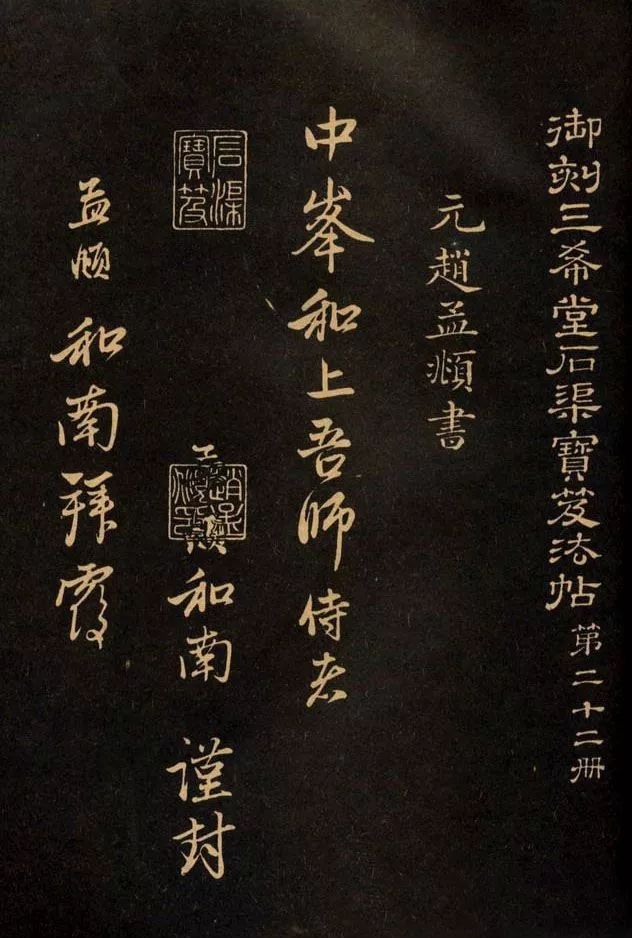 御刻三希堂石渠寶笈法帖 第二十二册
元趙孟頫書
中峯和上吾師 侍者
石渠寶笈
和南 謹封
孟頫 和南拜覆